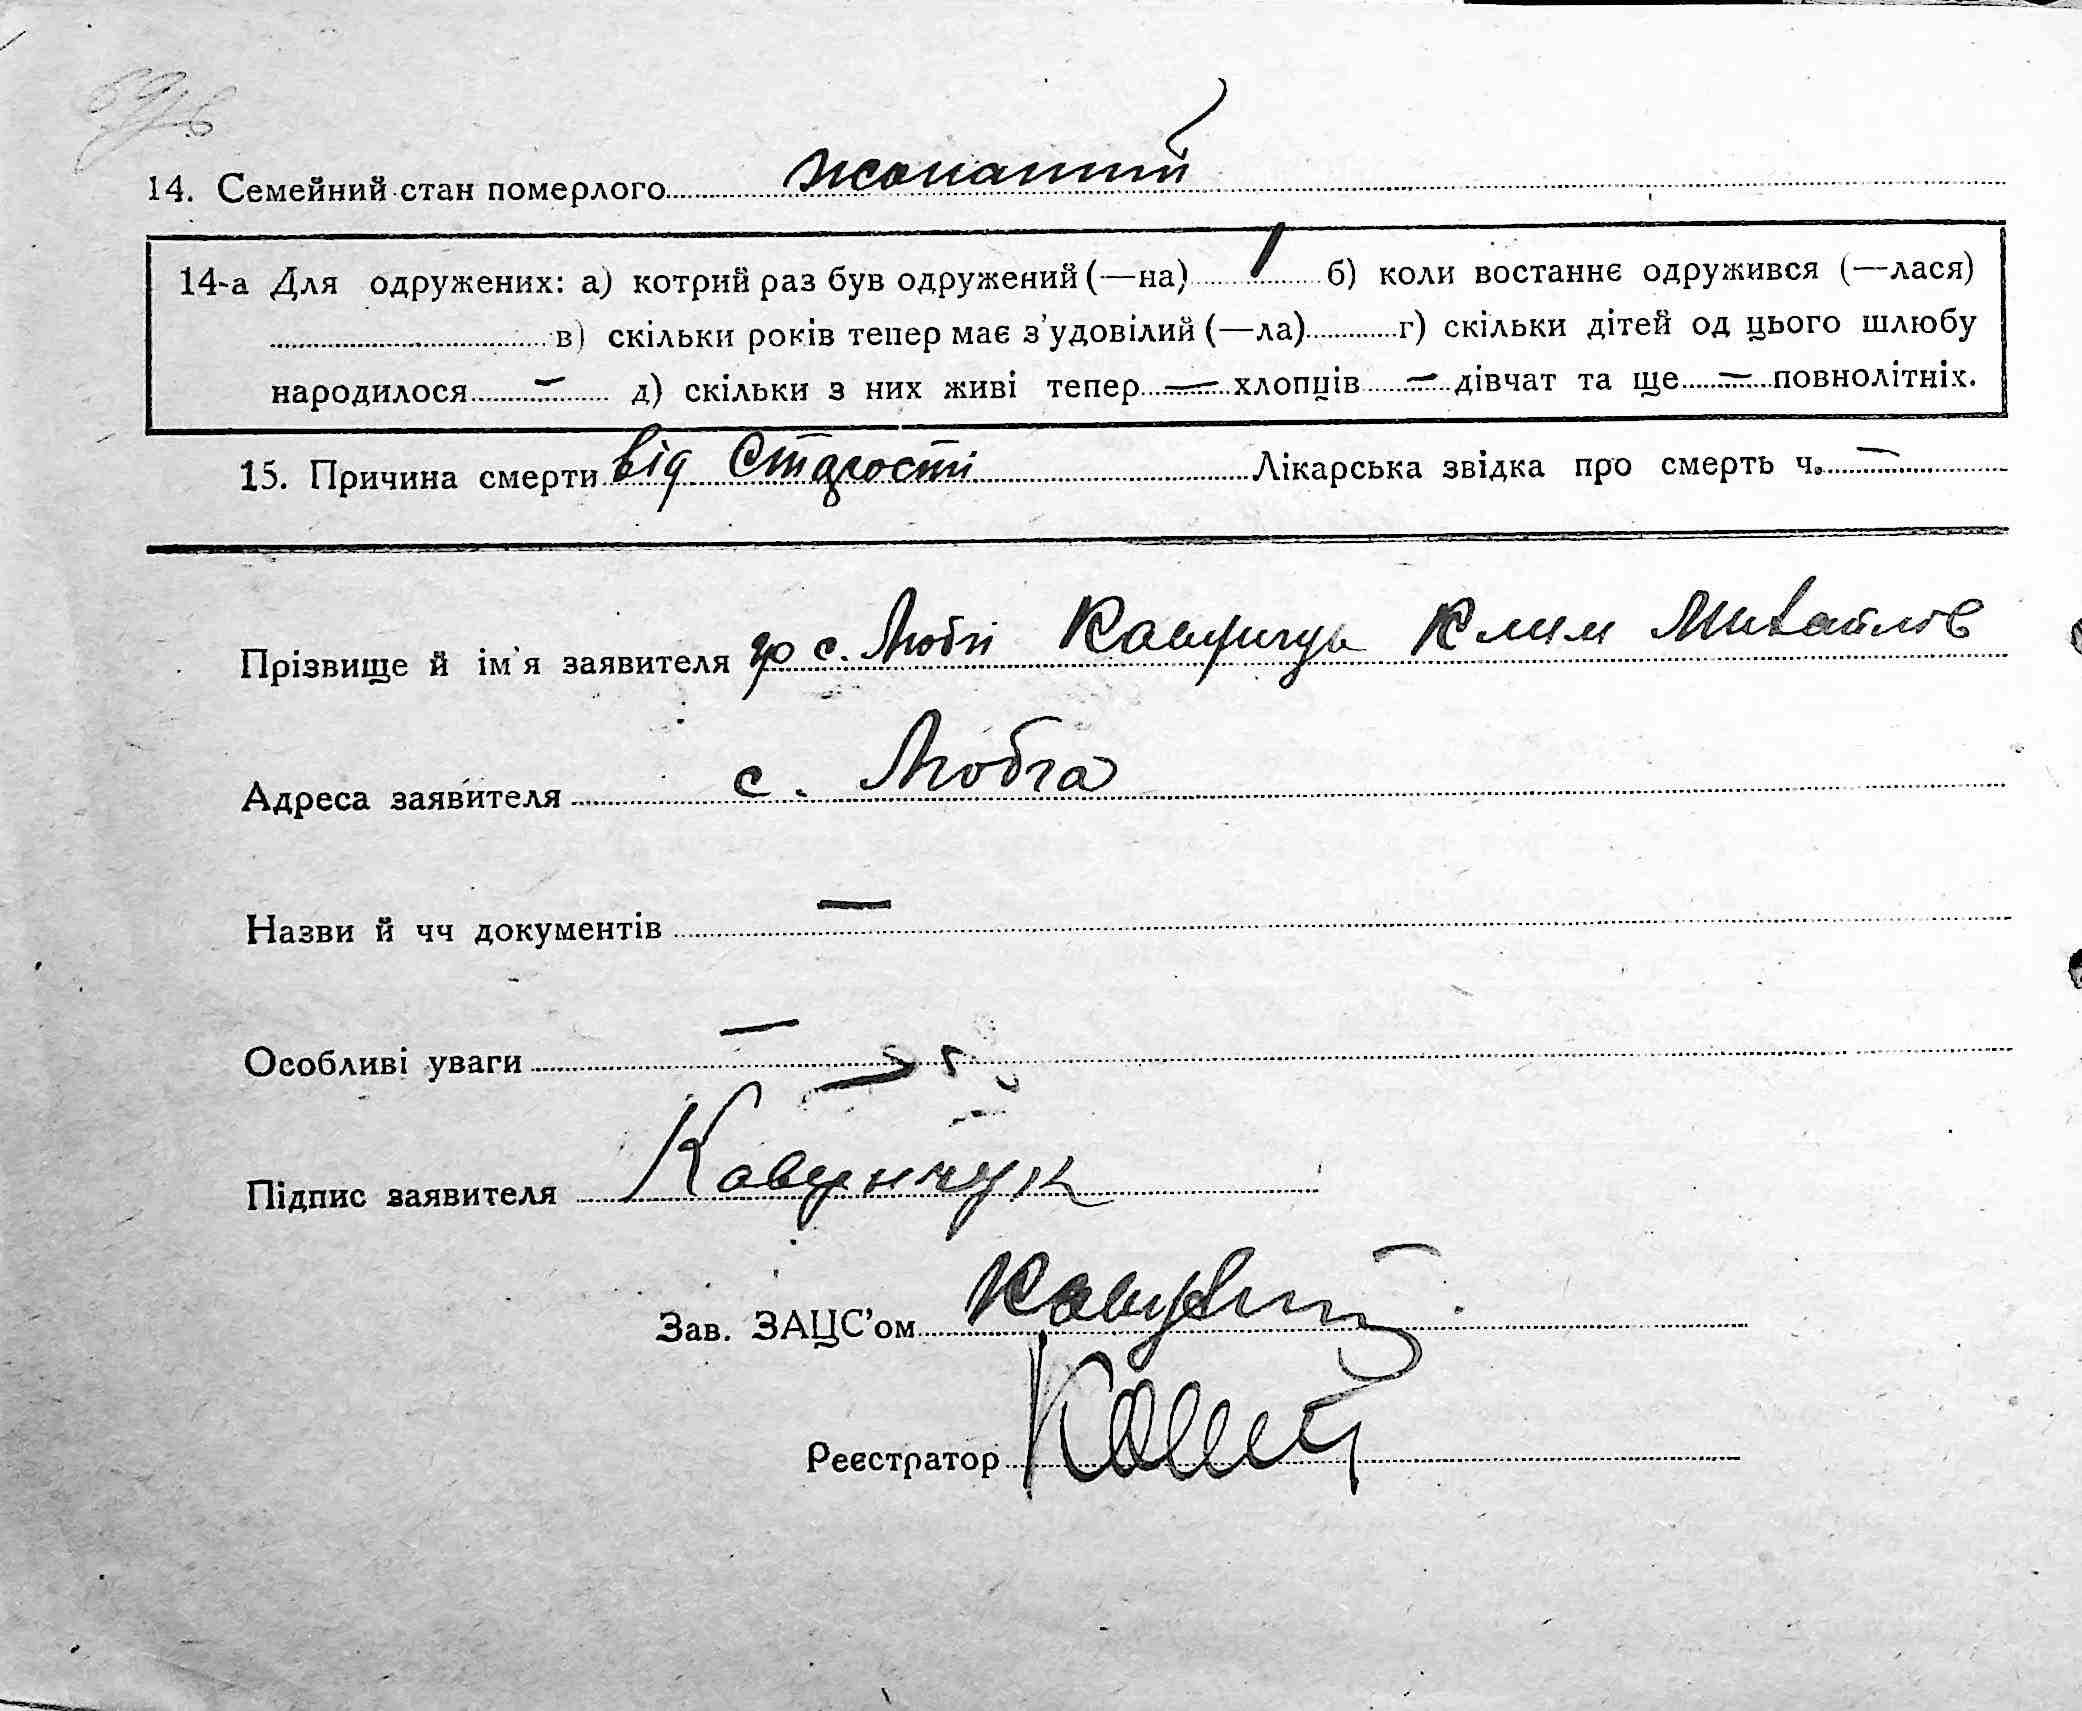 14. Семейний стан померлого жонатий
14-а Для одружених: а) котрий раз був одружений (—на) 1 б) коли востаннє одружився (—лася)
в) скільки років тепер має з'удовілий (—ла) г) скільки дітей од цього шлюбу
народилося — д) скільки з них живі тепер — хлопців — дівчат та ще — повнолітніх.
15. Причина смерти від старости Лікарська звідка про смерть ч. —
Прізвище й ім'я заявителя гр с. Кавунчук Клим Михайлов
Адреса заявителя с.
Назви й чч документів —
Особливі уваги —
Підпис заявителя Кавунчук
Зав. ЗАЦС'ом
Реєстратор